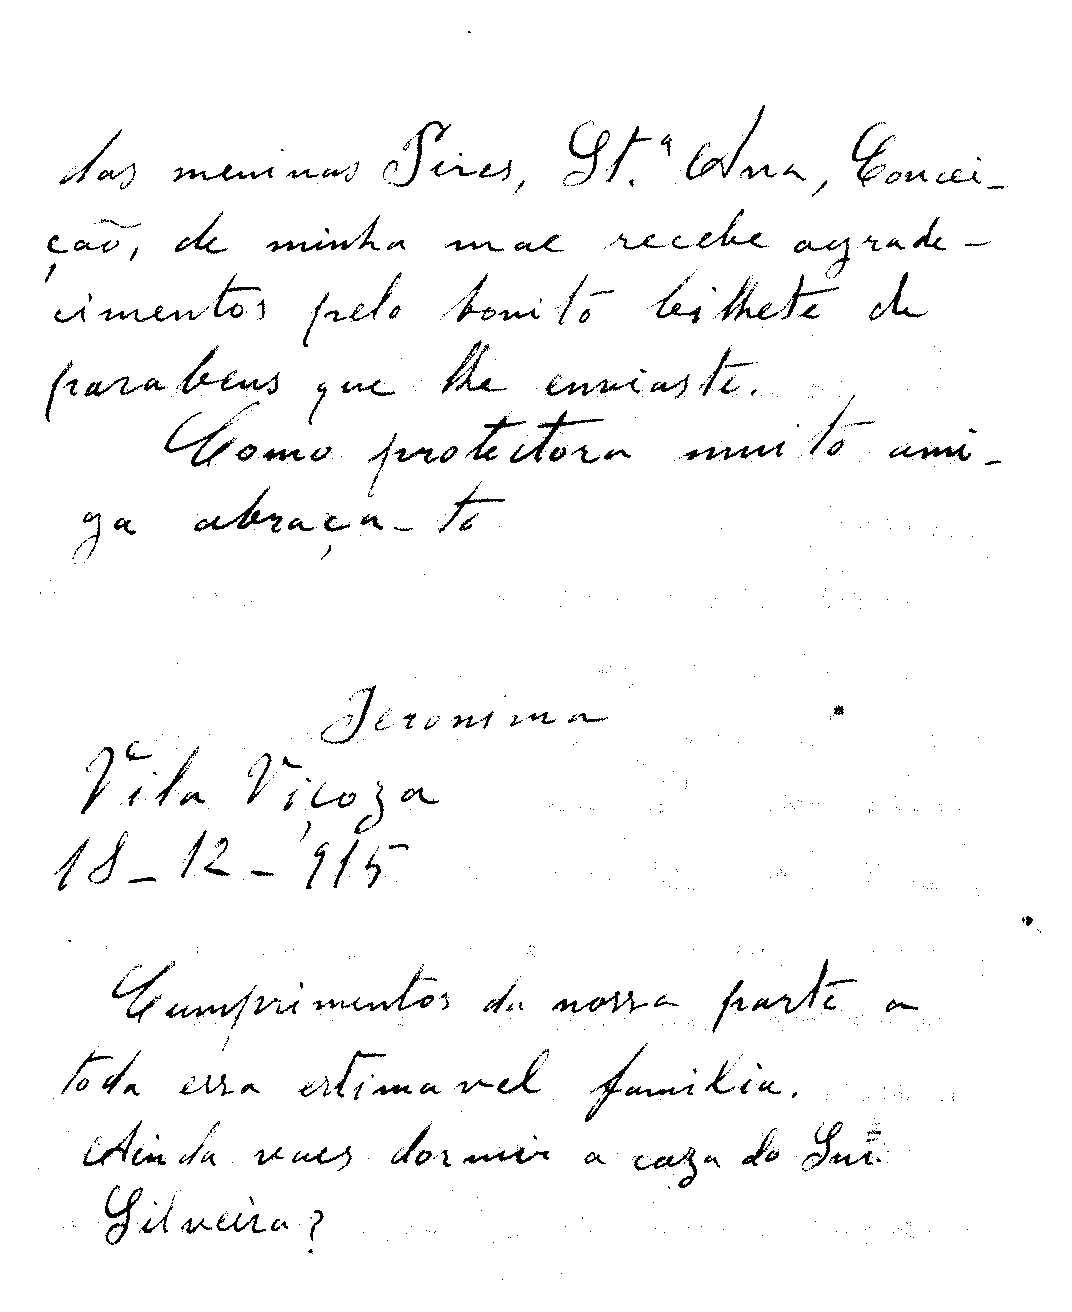 das meninas Pires, St.ª Anna, Concei-
ção, de minha mae recebe agrade-
cimentos pelo bonito bilhete de
parabens que lhe enviaste.
Como protectora muito ami-
ga abraça-te
Jeronima
Vila Viçoza
18-12-915
Cumprimentos da nossa parte a
toda essa estimavel familia.
Ainda vaes dormir a caza do Snr.
Silveira?